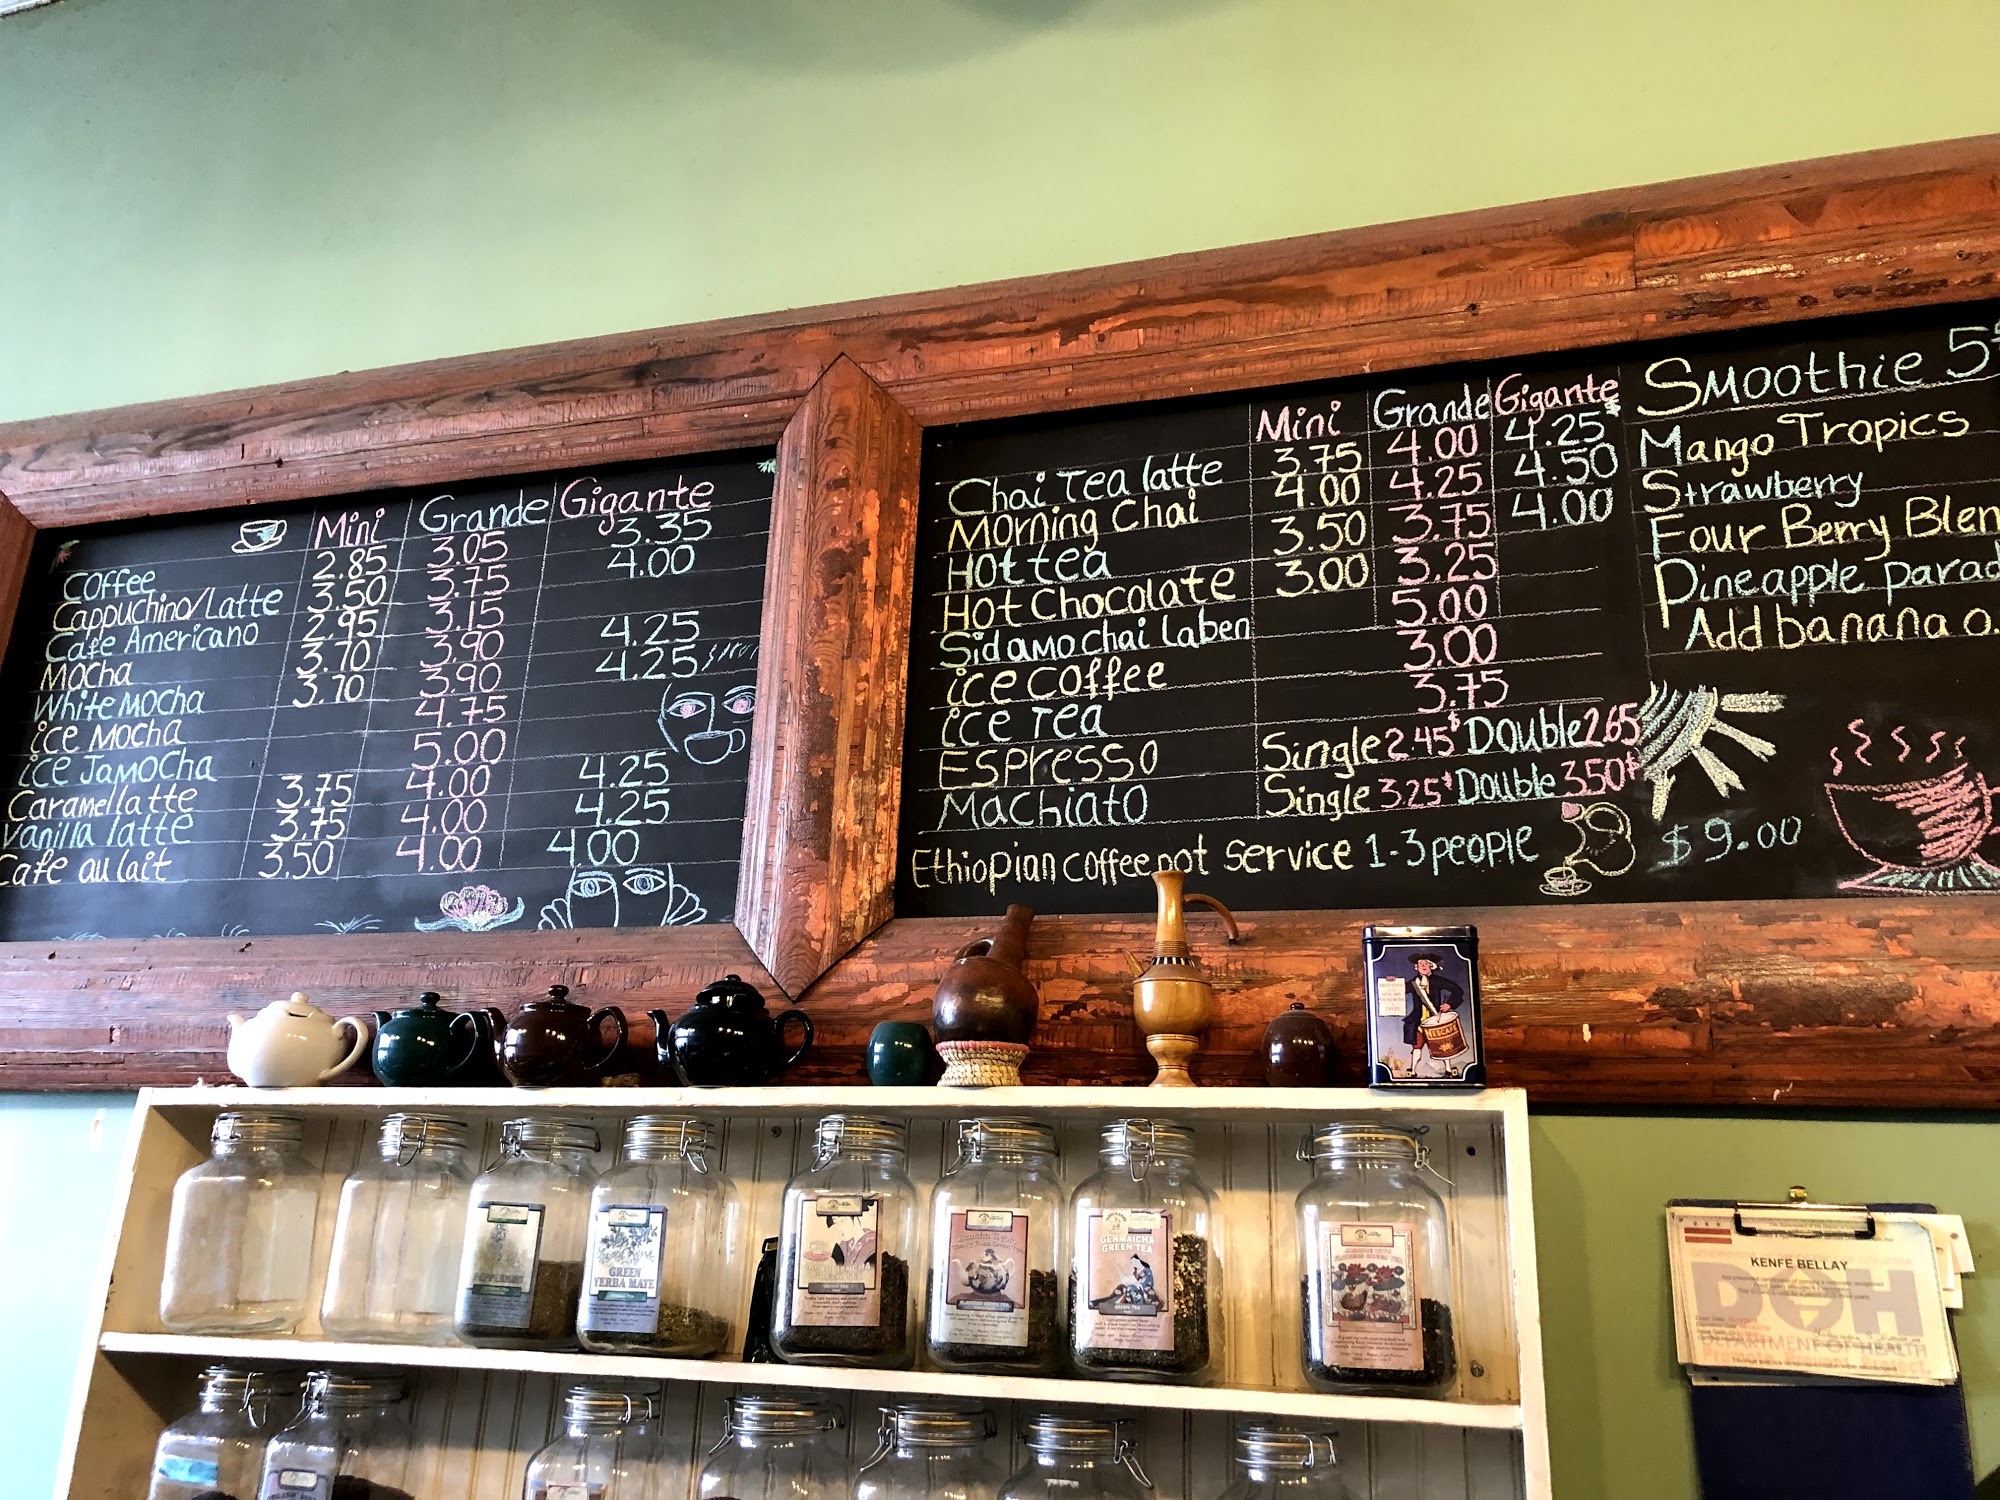 Mini Grande Gigante
Coffee 2.85 3.05 3.35
Cappuchino/Latte 3.50 3.75 4.00
Cafe Americano 2.95 3.15
Mocha 3.70 3.90 4.25
White Mocha 3.70 3.90 4.25
ice Mocha 4.75
ice Jamocha 5.00
Caramel latte 3.75 4.00 4.25
Vanilla latte 3.75 4.00 4.25
Cafe au lait 3.50 4.00 4.00
Mini Grande Gigante
Chai Tea latte 3.75 4.00 4.25
Morning Chai 4.00 4.25 4.50
Hot tea 3.50 3.75 4.00
Hot Chocolate 3.00 3.25
Sidamo chai laben 5.00
ice coffee 3.00
ice Tea 3.75
Espresso Single 2.45$ Double 2.65
Machiato Single 3.25$ Double 3.50$
Ethiopian coffee pot service 1-3 people $9.00
Smoothie 5
Mango Tropics
Strawberry
Four Berry Blen
Pineapple parad
Add banana o.
NESCAFÉ
GREEN
YERBA MATE
HERBAL TEA
GREEN TEA
GENMAICHA
GREEN TEA
GREEN TEA
KENFE BELLAY
DOH
DEPARTMENT OF HEALTH